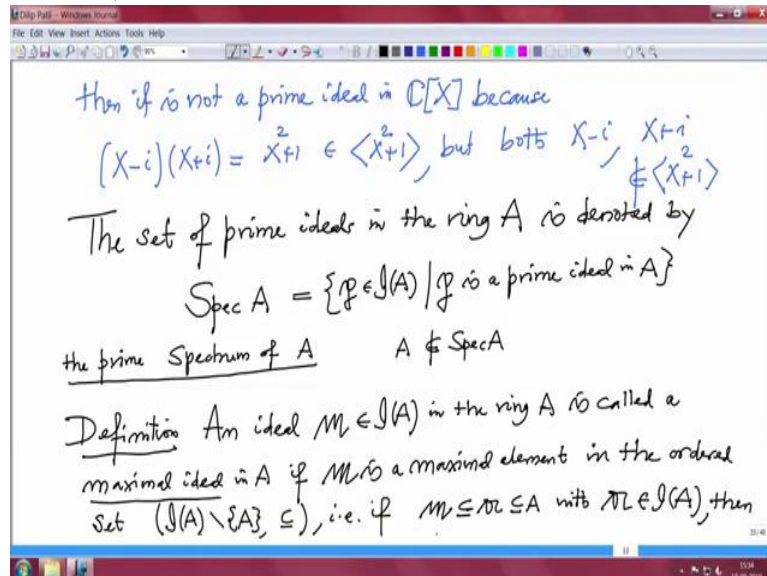 Dilip Patil - Windows Journal
File Edit View Insert Actions Tools Help
then if is not a prime ideal in ℂ[X] because
(X-i)(X+i) = X²+1 ∈ ⟨X²+1⟩, but both X-i, X+i
∉ ⟨X²+1⟩
The set of prime ideals in the ring A is denoted by
Spec A = {𝔭 ∈ 𝓘(A) | 𝔭 is a prime ideal in A}
the prime Spectrum of A A ∉ Spec A
Definition An ideal 𝔪 ∈ 𝓘(A) in the ring A is called a
maximal ideal in A if 𝔪 is a maximal element in the ordered
set (𝓘(A) \ {A}, ⊆), i.e. if 𝔪 ⊆ 𝔞 ⊆ A with 𝔞 ∈ 𝓘(A), then
33/40
15:34